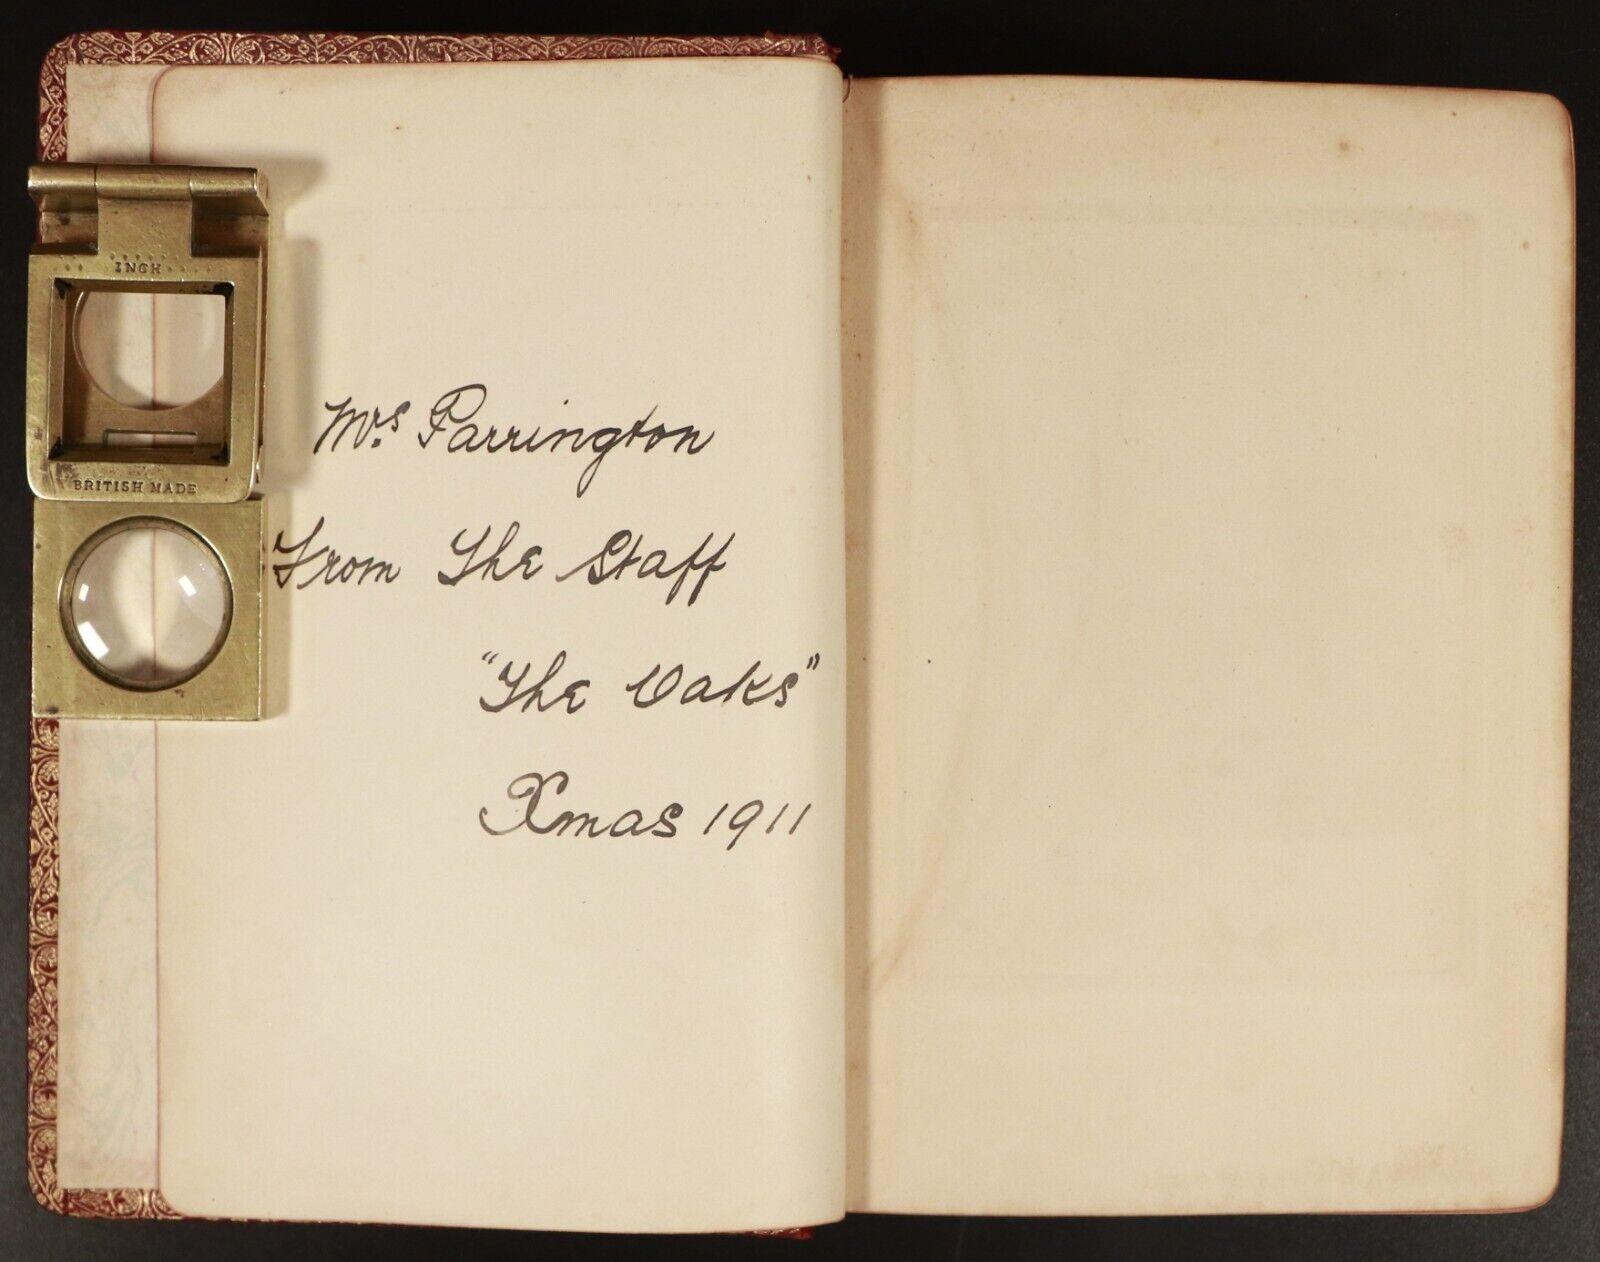 INCH
BRITISH MADE
Mrs. Parrington
From The Staff
"The Oaks"
Xmas 1911